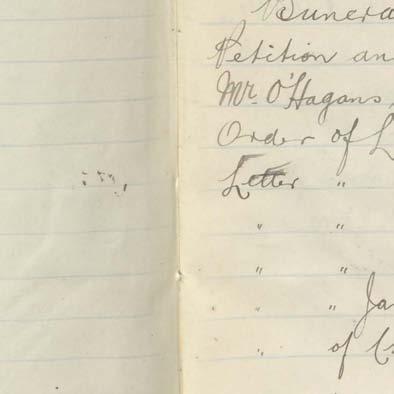 Petition an
Mr. O'Hagans,
Order of L
Letter "
" "
" "
" " Ja
" of C